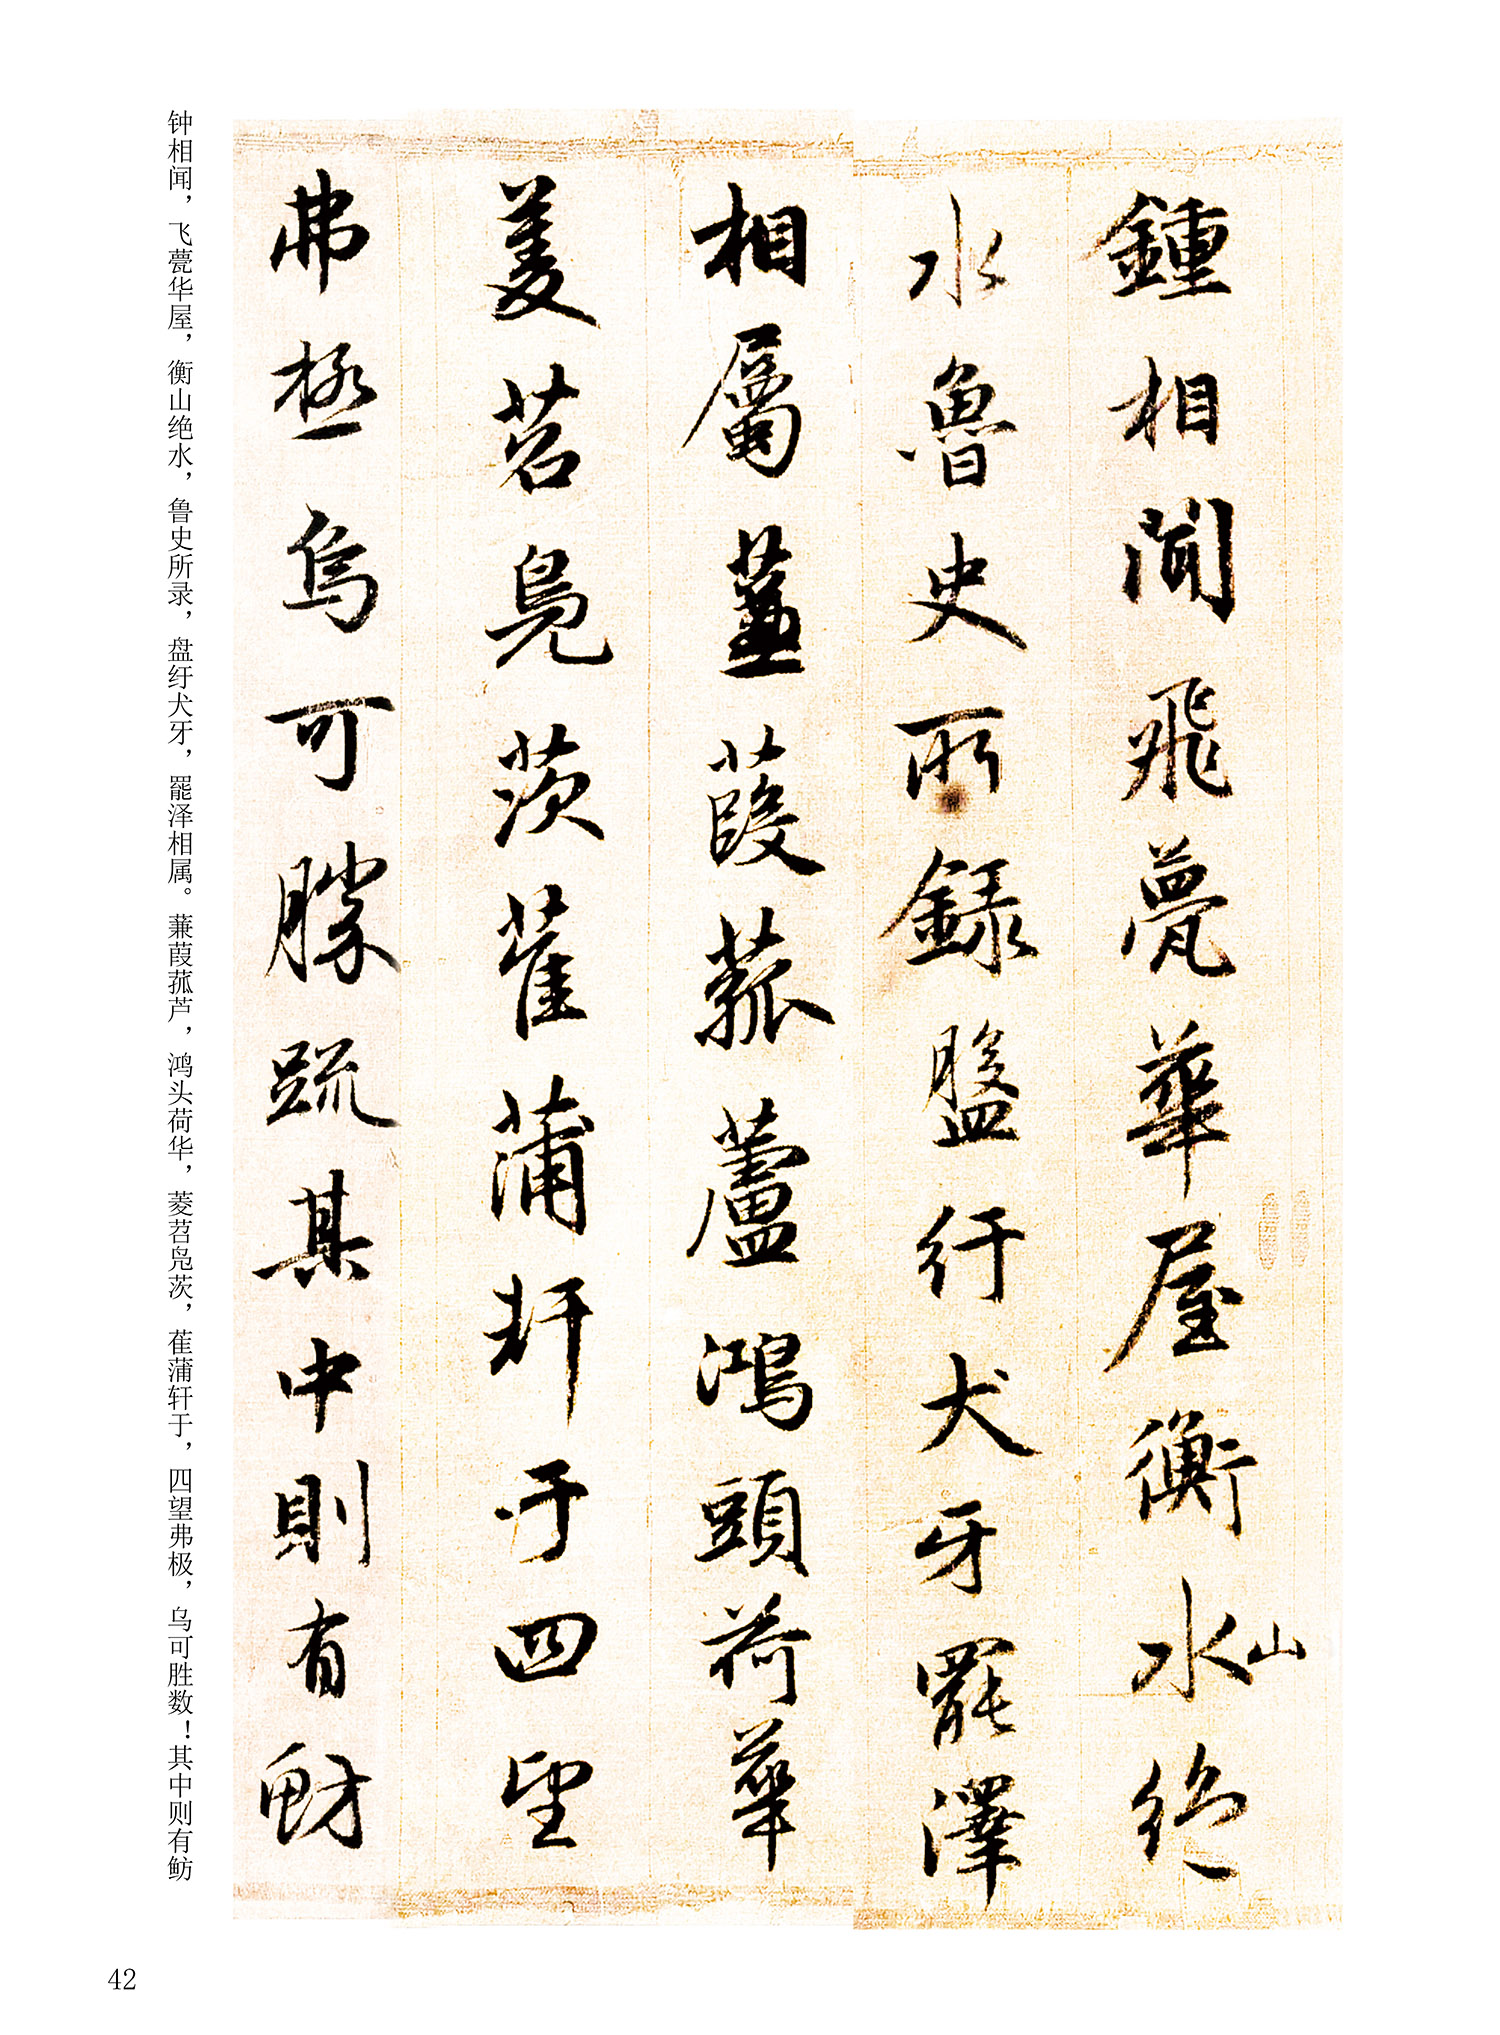 鍾相聞飛甍華屋衡水山絶
水魯史所錄盤紆犬牙罷澤
相屬蒹葭菰蘆鴻頭荷華
菱苕凫茨萑蒲軒于四望
弗極烏可勝數其中則有魴
钟相闻，飞甍华屋，衡山绝水，鲁史所录，盘纡犬牙，罷泽相属。蒹葭菰芦，鸿头荷华，菱苕凫茨，萑蒲轩于，四望弗极，乌可胜数！其中则有鲂
42